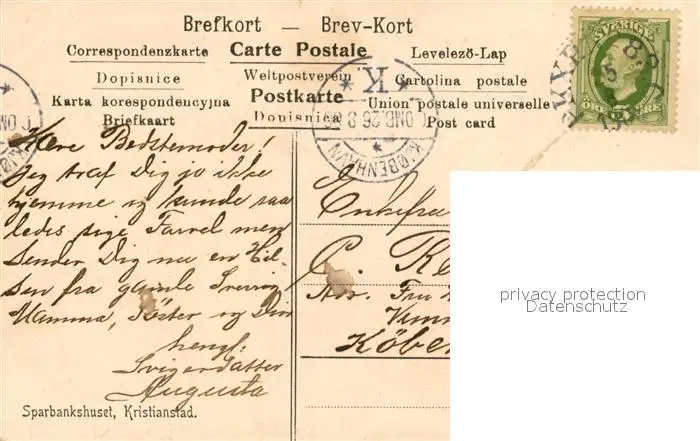 Brefkort — Brev-Kort
Correspondenzkarte Carte Postale Levelező-Lap
Dopisnice Weltpostverein Cartolina postale
Karta korespondencyjna Postkarte Union postale universelle
Briefkaart Dopisnica Post card
SVERIGE
5
ÖRE ÖRE
KJØBENHAVN
K.
OMB. 26 8
Kære Bedstemoder!
Jeg traf Dig jo ikke
hjemme og kunde saa
ledes sige Farvel men
sender Dig nu en Hil-
sen fra gamle Sverrig
Mamma, Søster og Din
hengf.
Svigerdatter
Augusta
Enkefru
C.
Adr. Fru
Køben
privacy protection
for download
Sparbankshuset, Kristianstad.